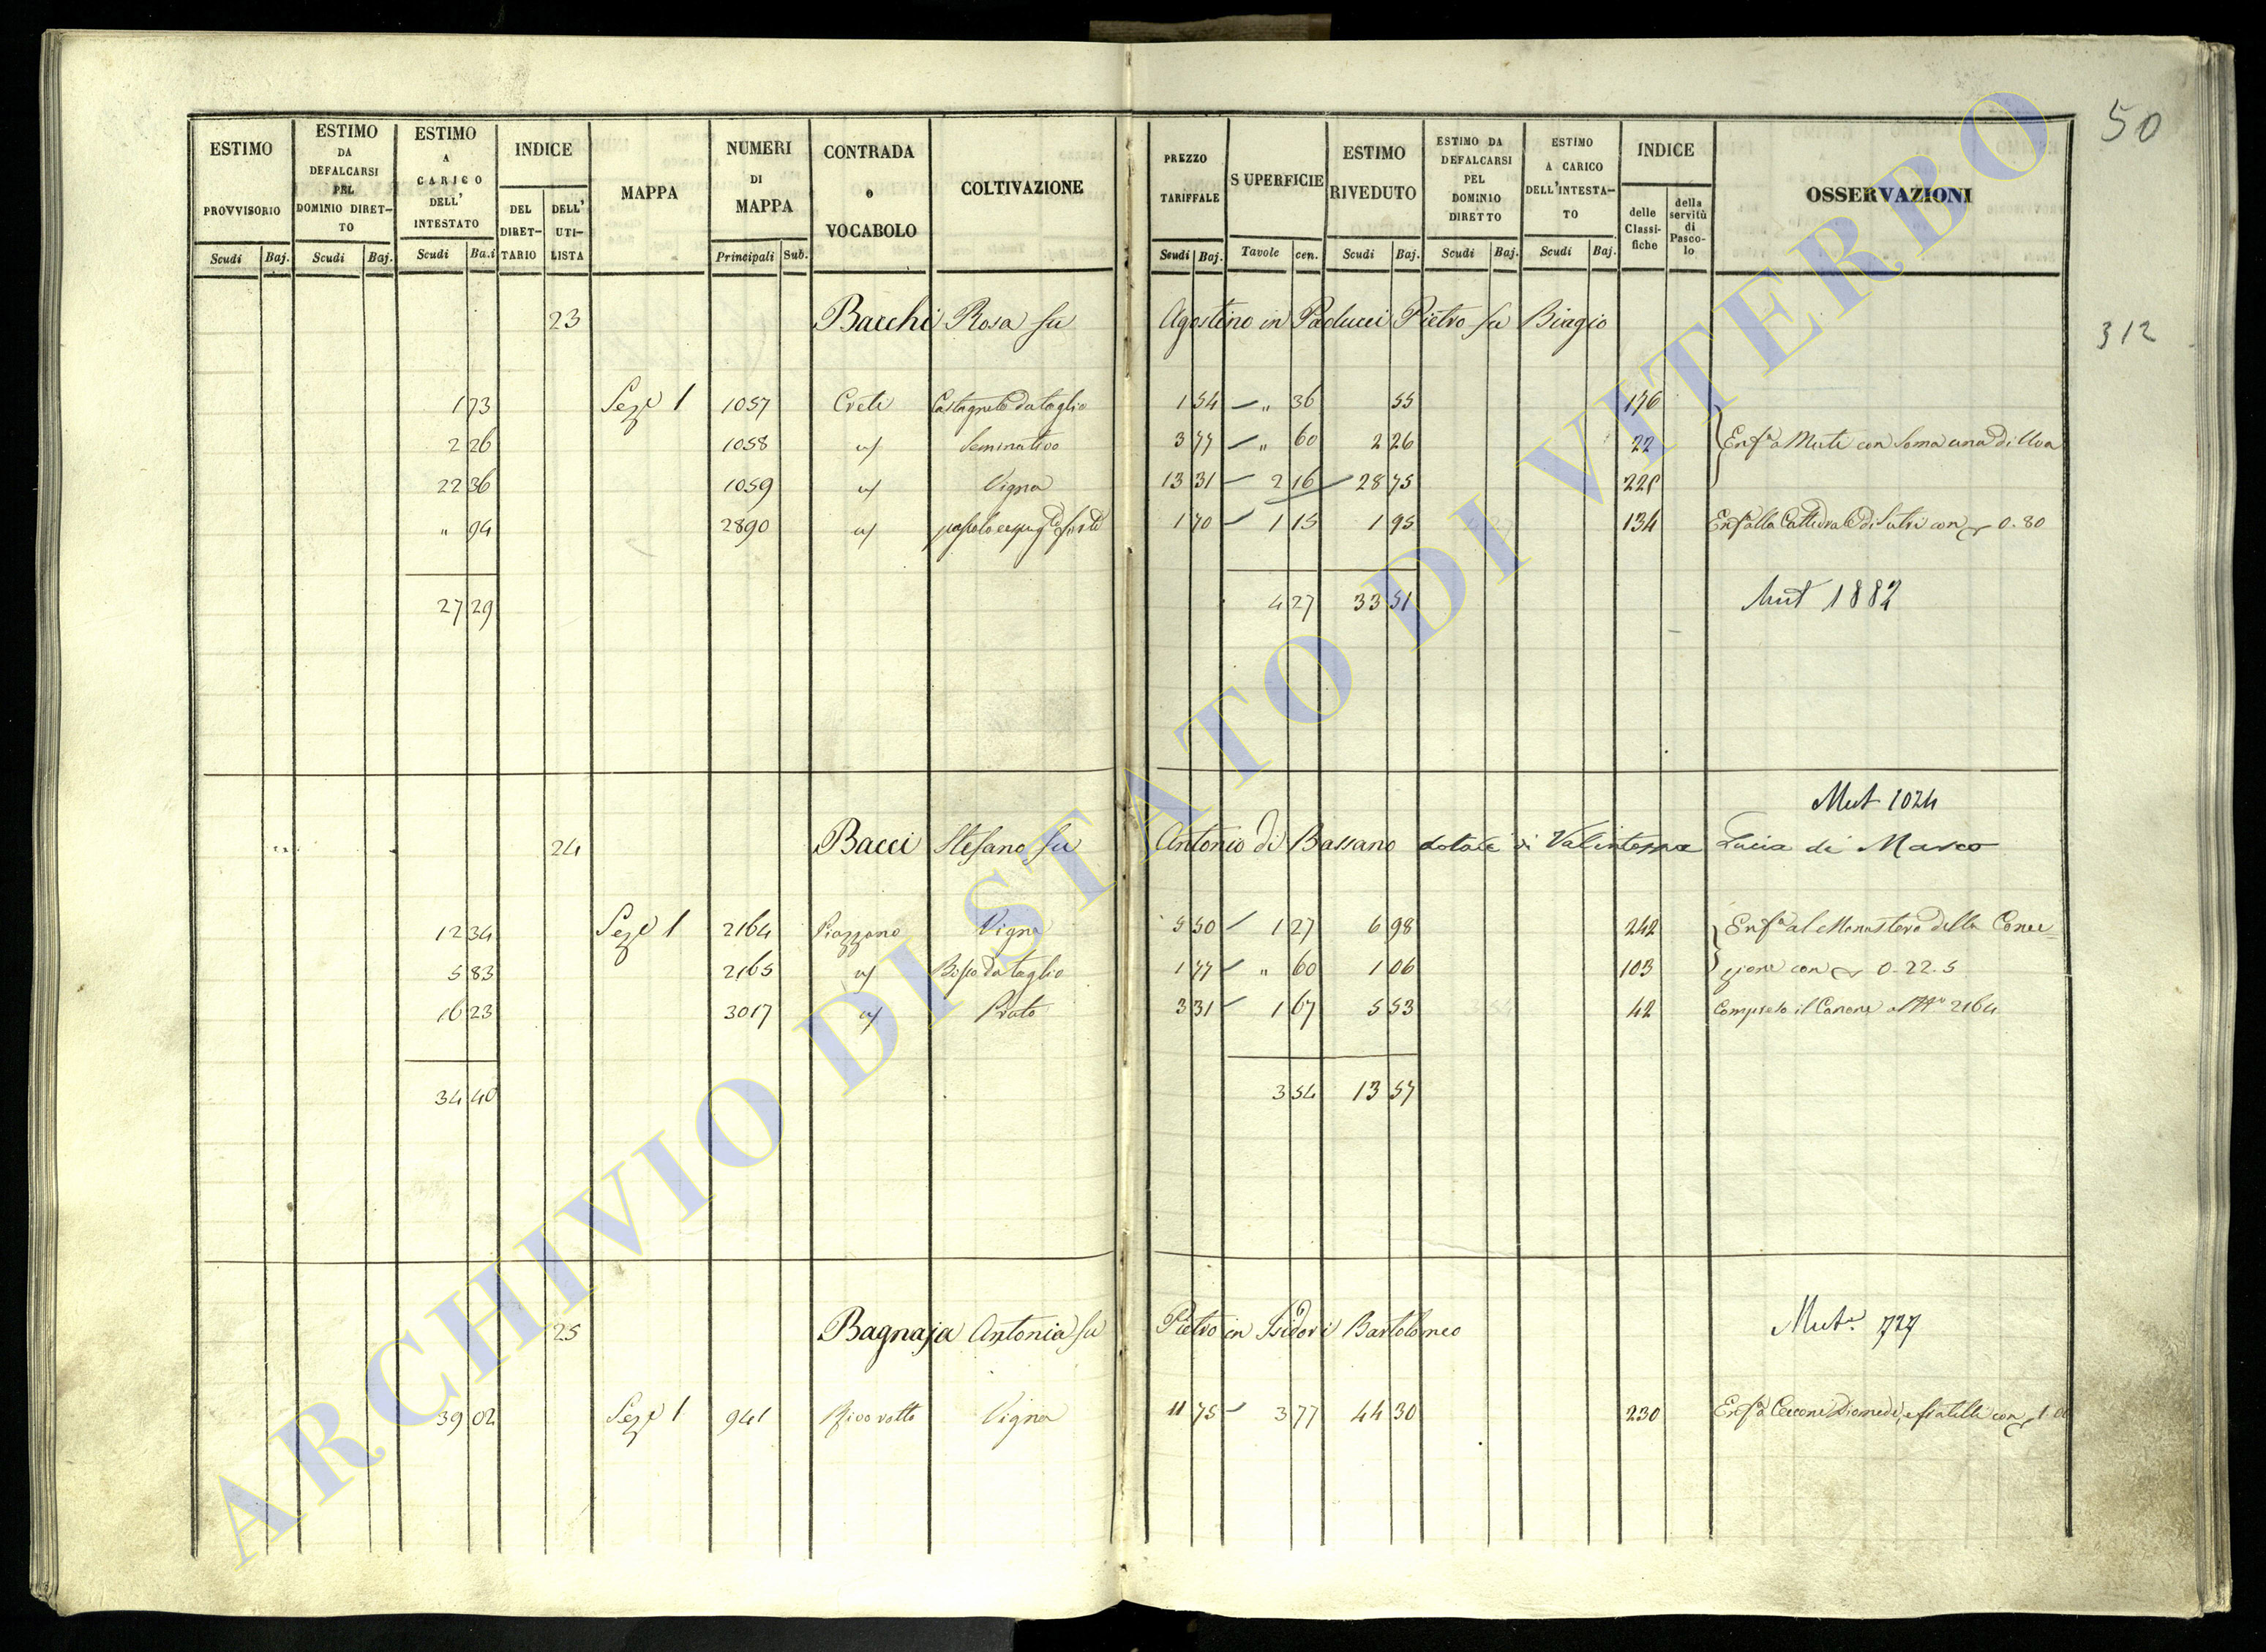 50
ESTIMO PROVVISORIO Scudi Baj.
ESTIMO DA DEFALCARSI PEL DOMINIO DIRET-TO Scudi Baj.
ESTIMO A CARICO DELL' INTESTATO Scudi Ba.i
INDICE DEL DIRET-TARIO DELL' UTI-LISTA
MAPPA
NUMERI DI MAPPA Principali Sub.
CONTRADA o VOCABOLO
COLTIVAZIONE
PREZZO TARIFFALE Scudi Baj.
SUPERFICIE Tavole cen.
ESTIMO RIVEDUTO Scudi Baj.
ESTIMO DA DEFALCARSI PEL DOMINIO DIRETTO Scudi Baj.
ESTIMO A CARICO DELL'INTESTA-TO Scudi Baj.
INDICE delle Classi-fiche della servitù di Pasco-lo
OSSERVAZIONI
23 Bacchi Rosa fu Agostino in Paolucci Pietro fu Biagio
312
1 73 Sez.e 1 1057 Creti Castagneto da taglio 1 54 " 36 55 176
2 26 1058 Seminativo 3 77 " 60 2 26 22 Enf.a Muti con Soma una di Uva
22 36 1059 Vigna 13 31 2 16 28 75 221
" 94 2890 1 70 1 15 1 95 134 Enf. alla Cattedrale di Sutri con 0.80
27 29 4 27 33 51 Mut 1882
Mut 1024
24 Bacci Stefano fu Antonio di Bassano dotale di Lucia di Marco
12 34 Sez.e 1 2164 Piazzano Vigna 5 50 1 27 6 98 242 Enf.a al Monastero della Conce=
5 83 2165 Bosco da taglio 1 77 " 60 1 06 103 zione con 0.22.5
16 23 3017 Prato 3 31 1 67 5 53 42 Compreso il Canone al N.o 2164
34 40 3 54 13 57
25 Bagnaja Antonia fu Pietro in Isidori Bartolomeo Mut.e 727
39 02 Sez.e 1 941 Rivo rotto Vigna 11 75 3 77 44 30 230 Enf.a Cecconi Diomede, e fratelli con
ARCHIVIO DI STATO DI VITERBO